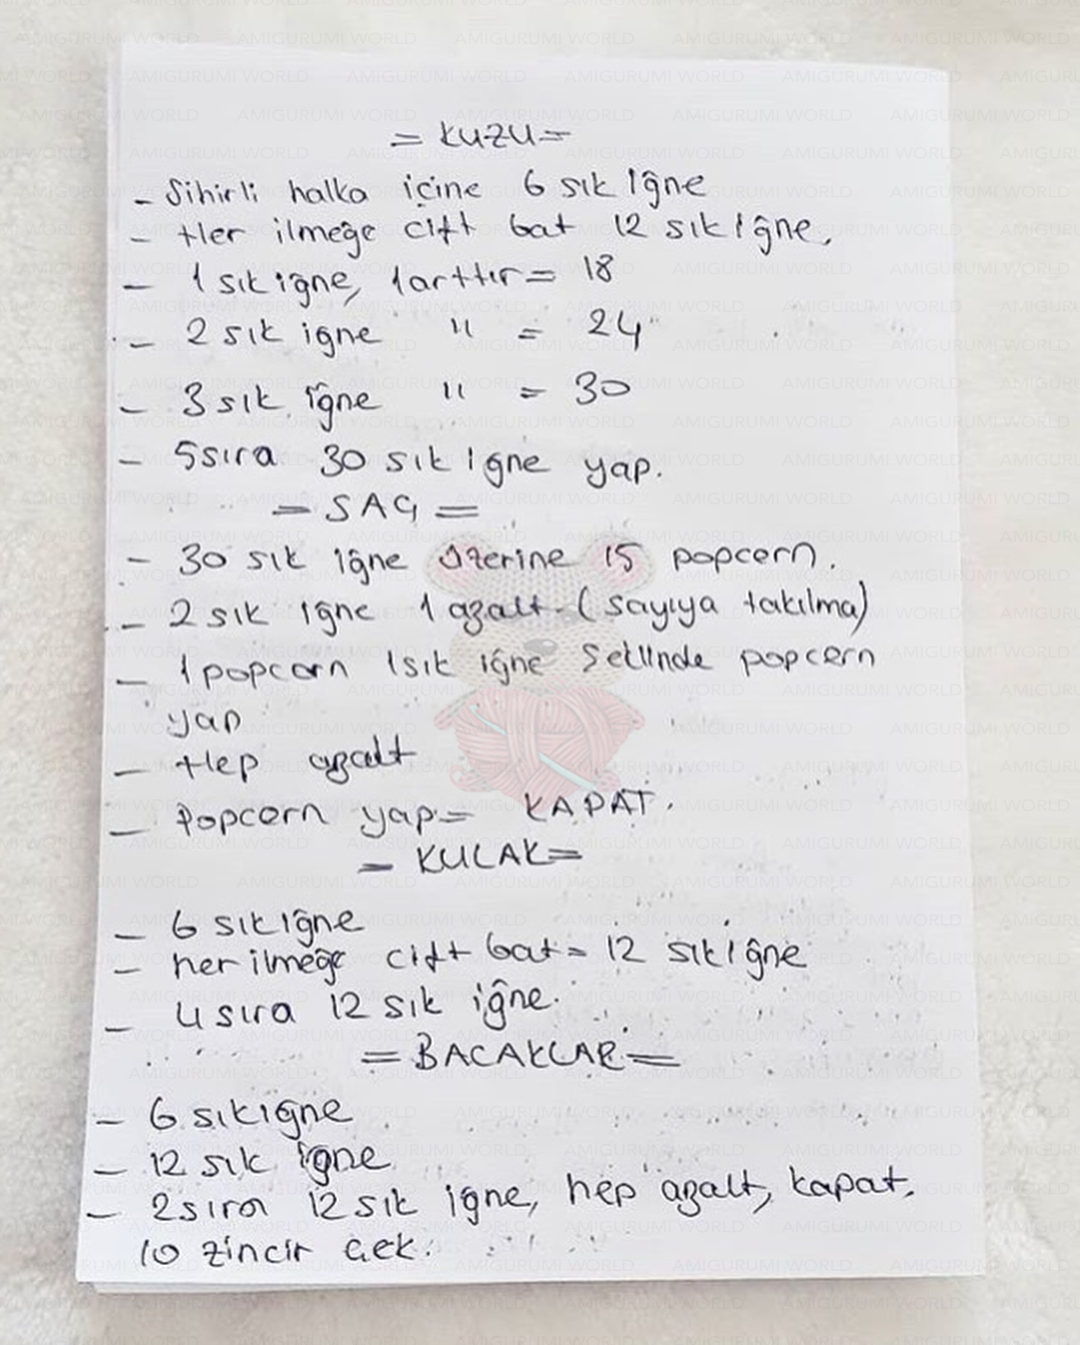 = KUZU =
- Sihirli halka içine 6 sık iğne
- Her ilmeğe çift bat 12 sık iğne.
- 1 sık iğne, 1 arttır = 18
- 2 sık iğne " = 24
- 3 sık iğne " = 30
- 5 sıra 30 sık iğne yap.
= SAÇ =
- 30 sık iğne üzerine 15 popcern.
- 2 sık iğne 1 azalt (sayıya takılma)
- 1 popcorn 1 sık iğne şeklinde popcern
yap
- Hep azalt
- Popcern yap = KAPAT.
= KULAK =
- 6 sık iğne
- her ilmeğe çift bat = 12 sık iğne
- 4 sıra 12 sık iğne.
= BACAKLAR =
- 6 sık iğne
- 12 sık iğne
- 2 sıra 12 sık iğne, hep azalt, kapat.
10 zincir çek.
AMIGURUMI WORLD